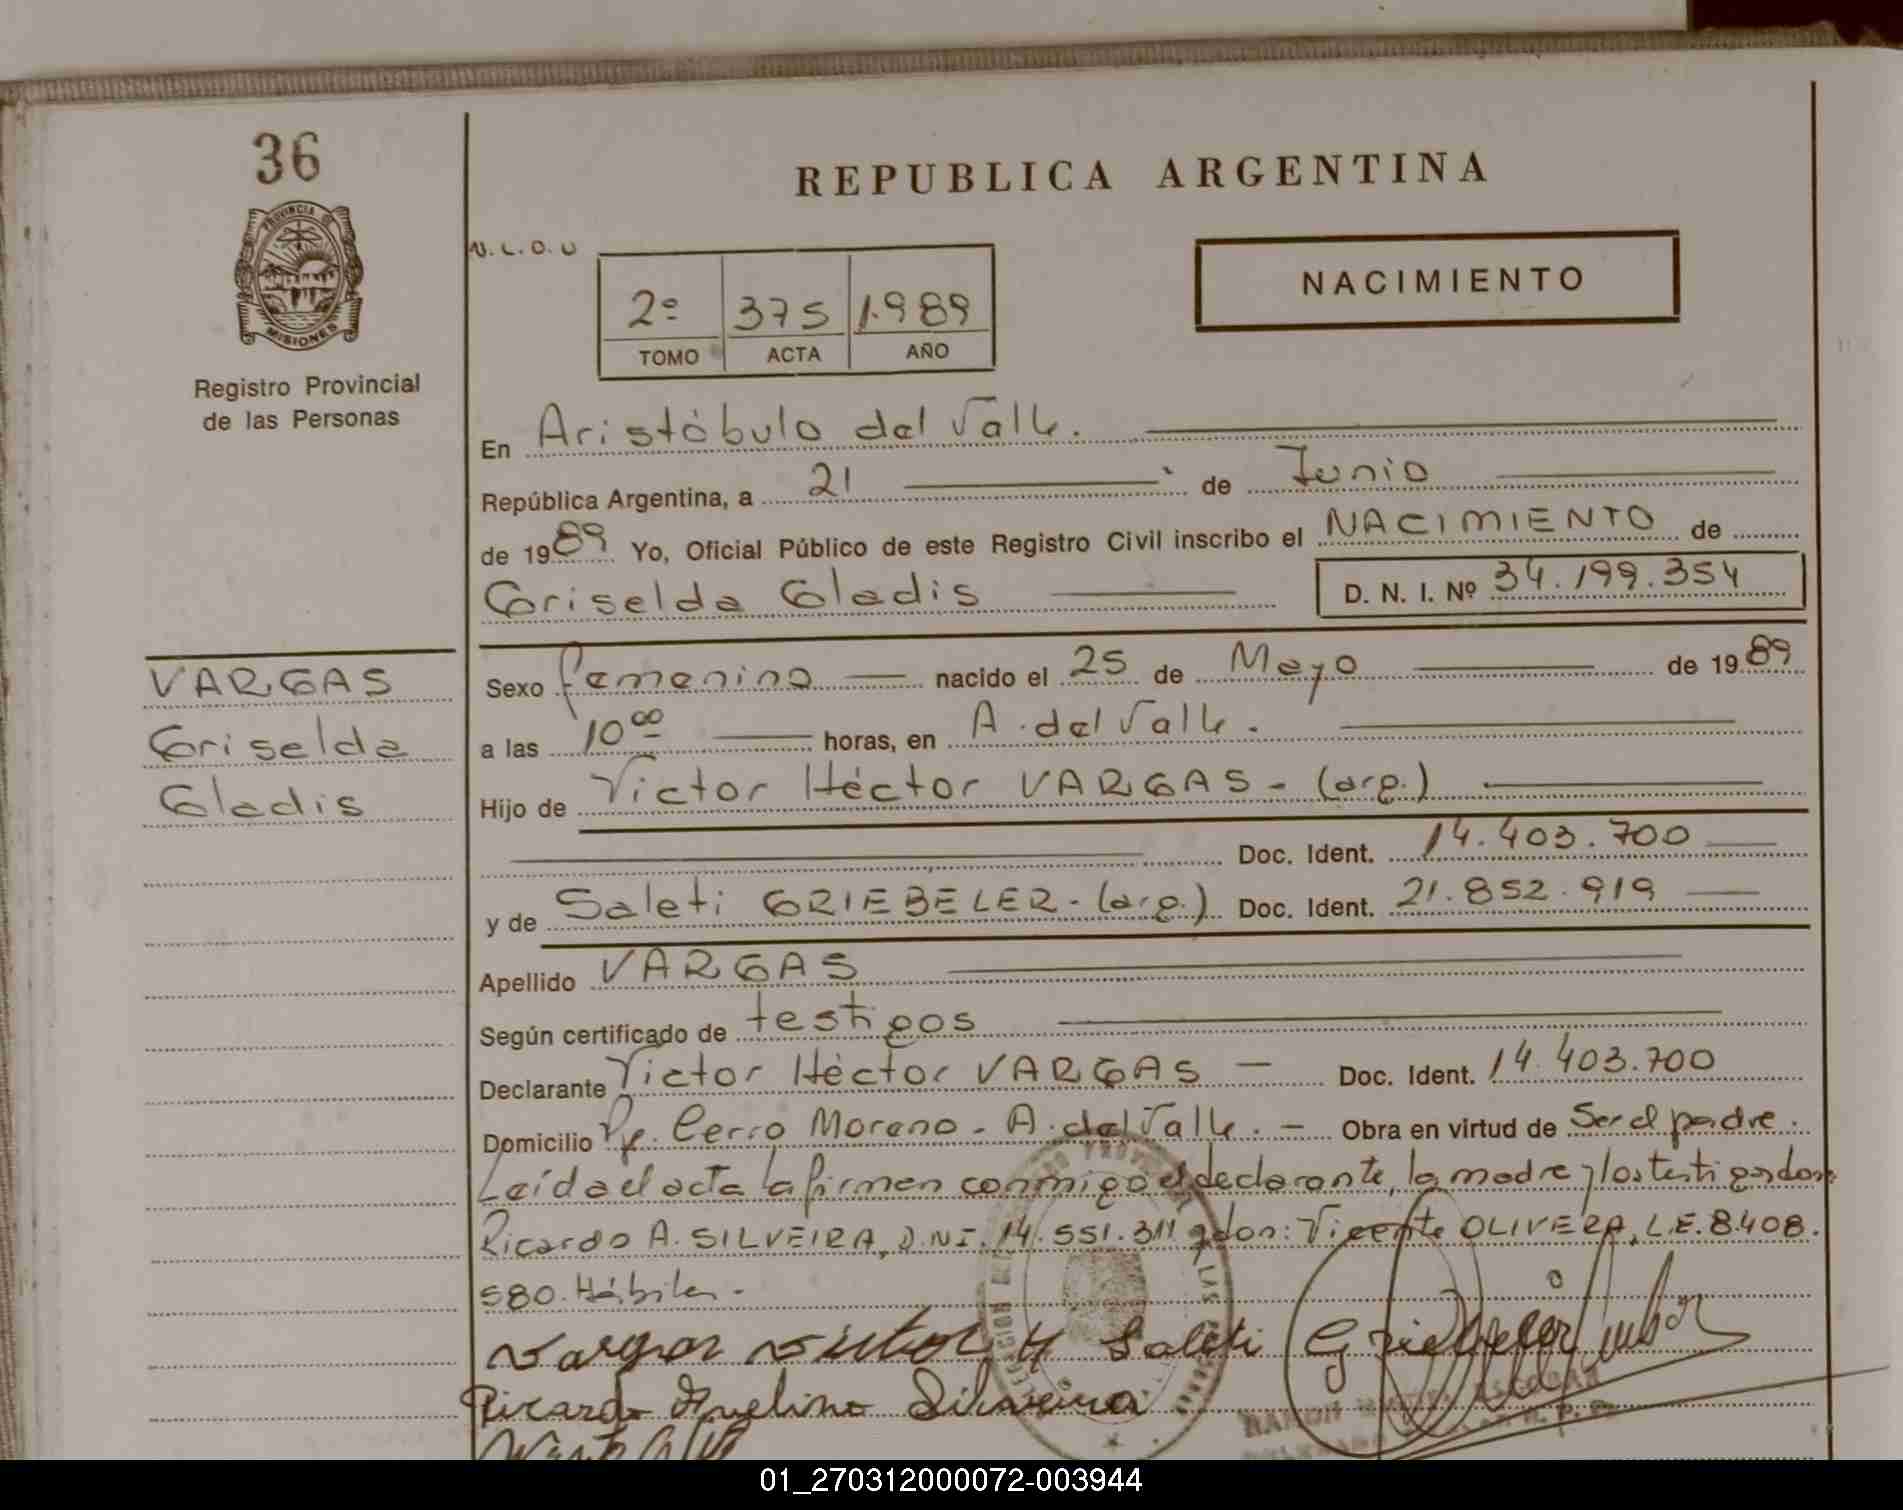 36
PROVINCIA DE
MISIONES
Registro Provincial
de las Personas
REPUBLICA ARGENTINA
N.L.O.U
2º 375 1.989
TOMO ACTA AÑO
NACIMIENTO
En Aristóbulo del Valle.
República Argentina, a 21 de Junio
de 1989 Yo, Oficial Público de este Registro Civil inscribo el NACIMIENTO de
Griselda Gladis D. N. I. Nº 34.199.354
VARGAS
Griselda
Gladis
Sexo femenino nacido el 25 de Mayo de 1989
a las 10 00 horas, en A. del Valle.
Hijo de Victor Héctor VARGAS - (arg.)
Doc. Ident. 14.403.700
y de Saleti GRIEBELER - (arg.) Doc. Ident. 21.852.919
Apellido VARGAS
Según certificado de testigos
Declarante Victor Héctor VARGAS - Doc. Ident. 14.403.700
Domicilio Pje. Cerro Moreno - A. del Valle. - Obra en virtud de Ser el padre.
Leída el acta la firman conmigo el declarante, la madre y los testigos don:
Ricardo A. SILVEIRA, D.N.I. 14.551.311 y don: Vicente OLIVERA, L.E. 8.408.
580. Hábiles. -
Vargas Victor H Saleti Griebeler
Ricardo Avelino Silveira
01_270312000072-003944